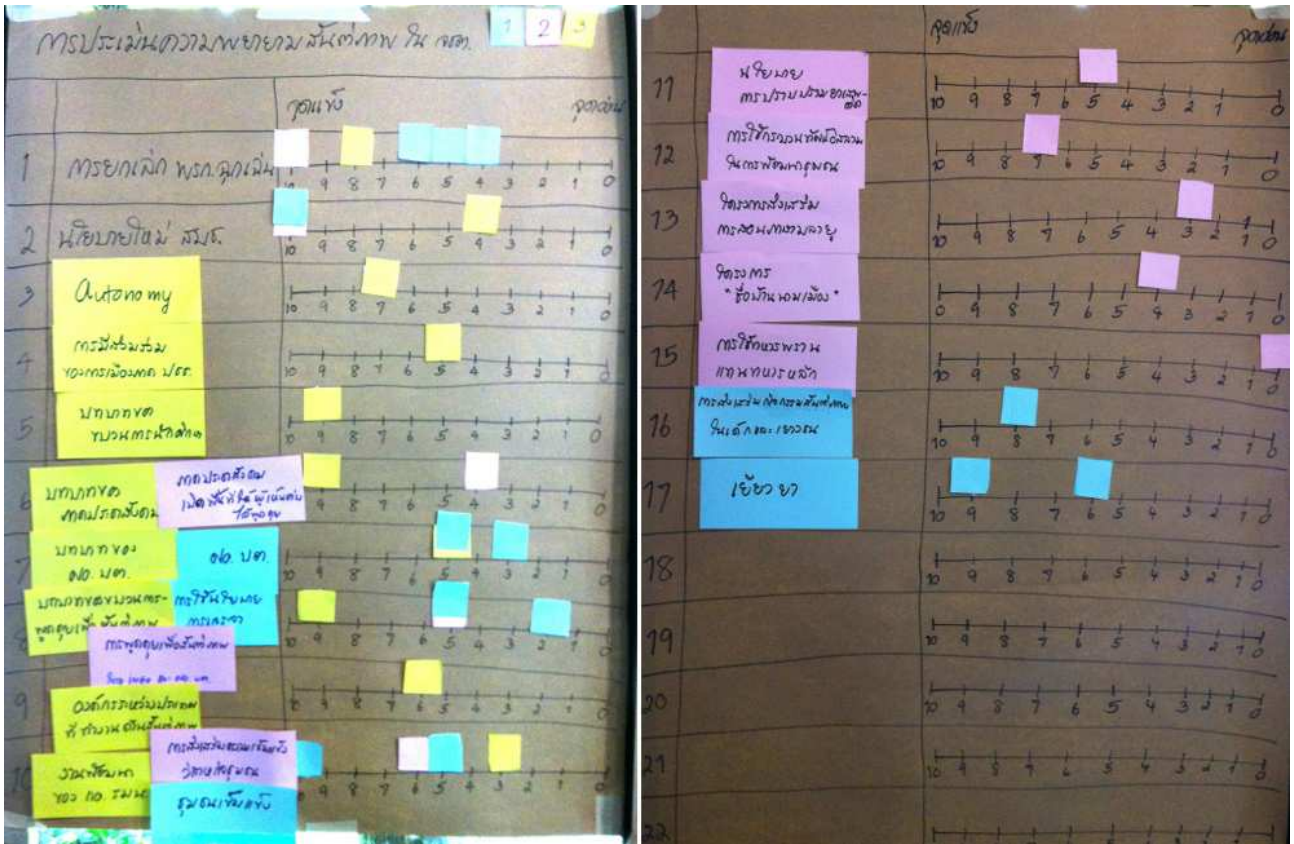 การประเมินความพยายามสันติภาพ ใน จชต.
1 2 3
จุดแข็ง จุดอ่อน
1 การยกเลิก พรก.ฉุกเฉิน
10 9 8 7 6 5 4 3 2 1 0
2 นโยบายใหม่ สมช.
10 9 8 7 6 5 4 3 2 1 0
3 Autonomy
10 9 8 7 6 5 4 3 2 1 0
4 การมีส่วนร่วม
ของการเมืองภาค ปชช.
10 9 8 7 6 5 4 3 2 1 0
5 บทบาทของ
ขบวนการนักศึกษา
10 9 8 7 6 5 4 3 2 1 0
6 บทบาทของ
ภาคประชาสังคม
ภาคประชาสังคม
เปิดพื้นที่ให้ผู้เห็นต่าง
ได้พูดคุย
10 9 8 7 6 5 4 3 2 1 0
7 บทบาทของ
ศอ. บต.
ศอ. บต.
10 9 8 7 6 5 4 3 2 1 0
8 บทบาทของขบวนการ-
พูดคุยเพื่อสันติภาพ
การใช้นโยบาย
การเจรจา
การพูดคุยเพื่อสันติภาพ
10 9 8 7 6 5 4 3 2 1 0
9 องค์กรระหว่างประเทศ
ที่ทำงานด้านสันติภาพ
10 9 8 7 6 5 4 3 2 1 0
10 งานพัฒนา
ของ กอ. รมน.
การส่งเสริมความเข้มแข็ง
วิสาหกิจชุมชน
ชุมชนเข้มแข็ง
10 9 8 7 6 5 4 3 2 1 0
จุดแข็ง จุดอ่อน
11 นโยบาย
การปราบปรามยาเสพ-
ติด
10 9 8 7 6 5 4 3 2 1 0
12 การใช้กระบวนทัศน์อิสลาม
ในการพัฒนาชุมชน
10 9 8 7 6 5 4 3 2 1 0
13 โครงการส่งเสริม
การสอนภาษามลายู
10 9 8 7 6 5 4 3 2 1 0
14 โครงการ
"ชื่อบ้านนามเมือง"
0 9 8 7 6 5 4 3 2 1 0
15 การใช้ทหารพราน
แทนทหารหลัก
10 9 8 7 6 5 4 3 2 1 0
16 การส่งเสริมกิจกรรมสันติภาพ
ในเด็กและเยาวชน
10 9 8 7 6 5 4 3 2 1 0
17 เยียวยา
10 9 8 7 6 5 4 3 2 1 0
18
10 9 8 7 6 5 4 3 2 1 0
19
10 9 8 7 6 5 4 3 2 1 0
20
10 9 8 7 6 5 4 3 2 1 0
21
10 9 8 7 6 5 4 3 2 1 0
22